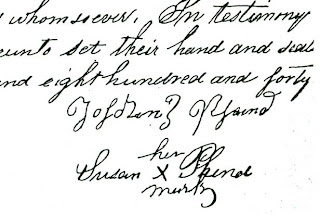 whomsoever. In testimony
eunto set their hand and seals
nd eight hundred and forty
her
Susan X
mark